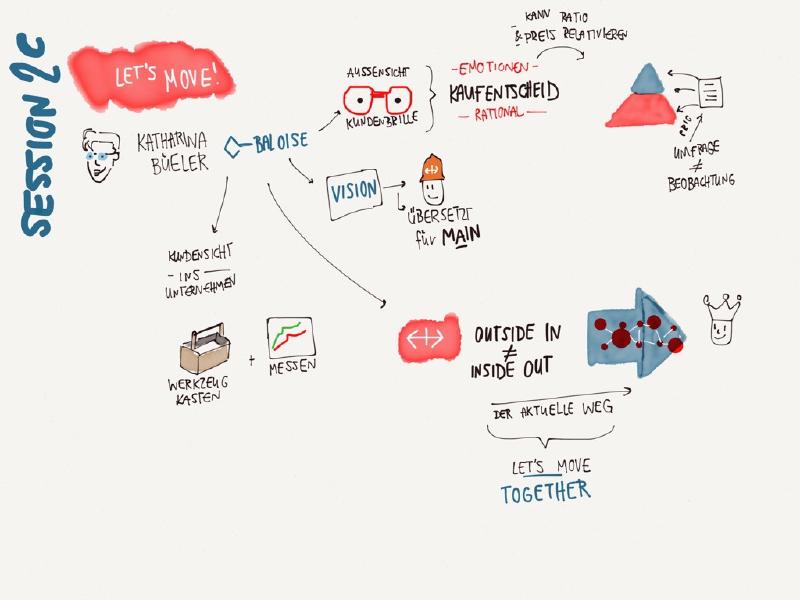 SESSION 2c
LET'S MOVE!
KATHARINA
BÜELER
BALOISE
AUSSENSICHT
KUNDENBRILLE
- EMOTIONEN -
KAUFENTSCHEID
- RATIONAL -
KANN RATIO
& PREIS RELATIVIEREN
UMFRAGE
≠
BEOBACHTUNG
VISION
ÜBERSETZT
für MAIN
KUNDENSICHT
- INS -
UNTERNEHMEN
WERKZEUG
KASTEN
+
MESSEN
OUTSIDE IN
≠
INSIDE OUT
DER AKTUELLE WEG
LET'S MOVE
TOGETHER